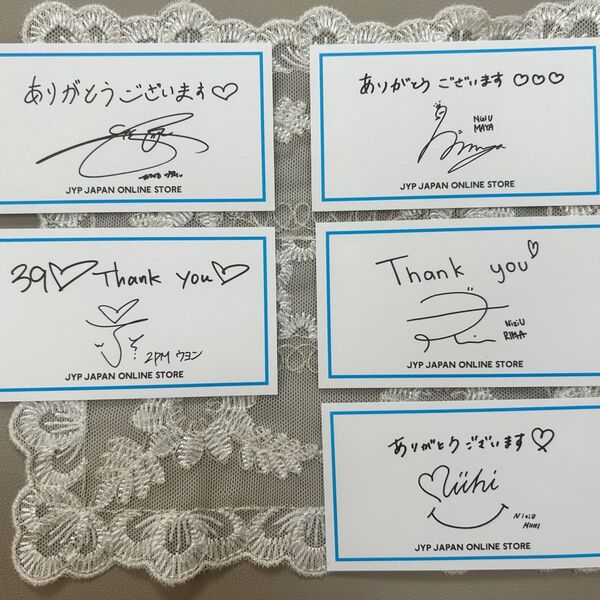 ありがとうございます♡
JYP JAPAN ONLINE STORE
ありがとうございます♡♡♡
NiziU
MAYA
JYP JAPAN ONLINE STORE
39♡ Thank you♡
2PM ウヨン
JYP JAPAN ONLINE STORE
Thank you♡
NiziU
RIMA
JYP JAPAN ONLINE STORE
ありがとうございます♡
Miihi
NiziU
MIIHI
JYP JAPAN ONLINE STORE